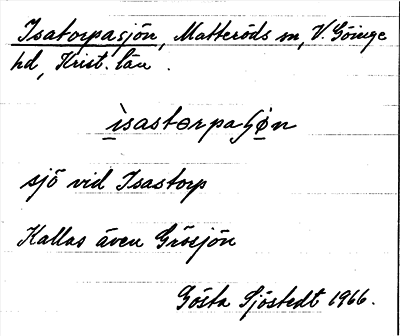 Isatorpasjön, Matteröds sn, V. Göinge
hd, Krist. län.
ìsastɵrpaʃø̱n
sjö vid Isastorp
Kallas även Gråsjön
Gösta Sjöstedt 1966.